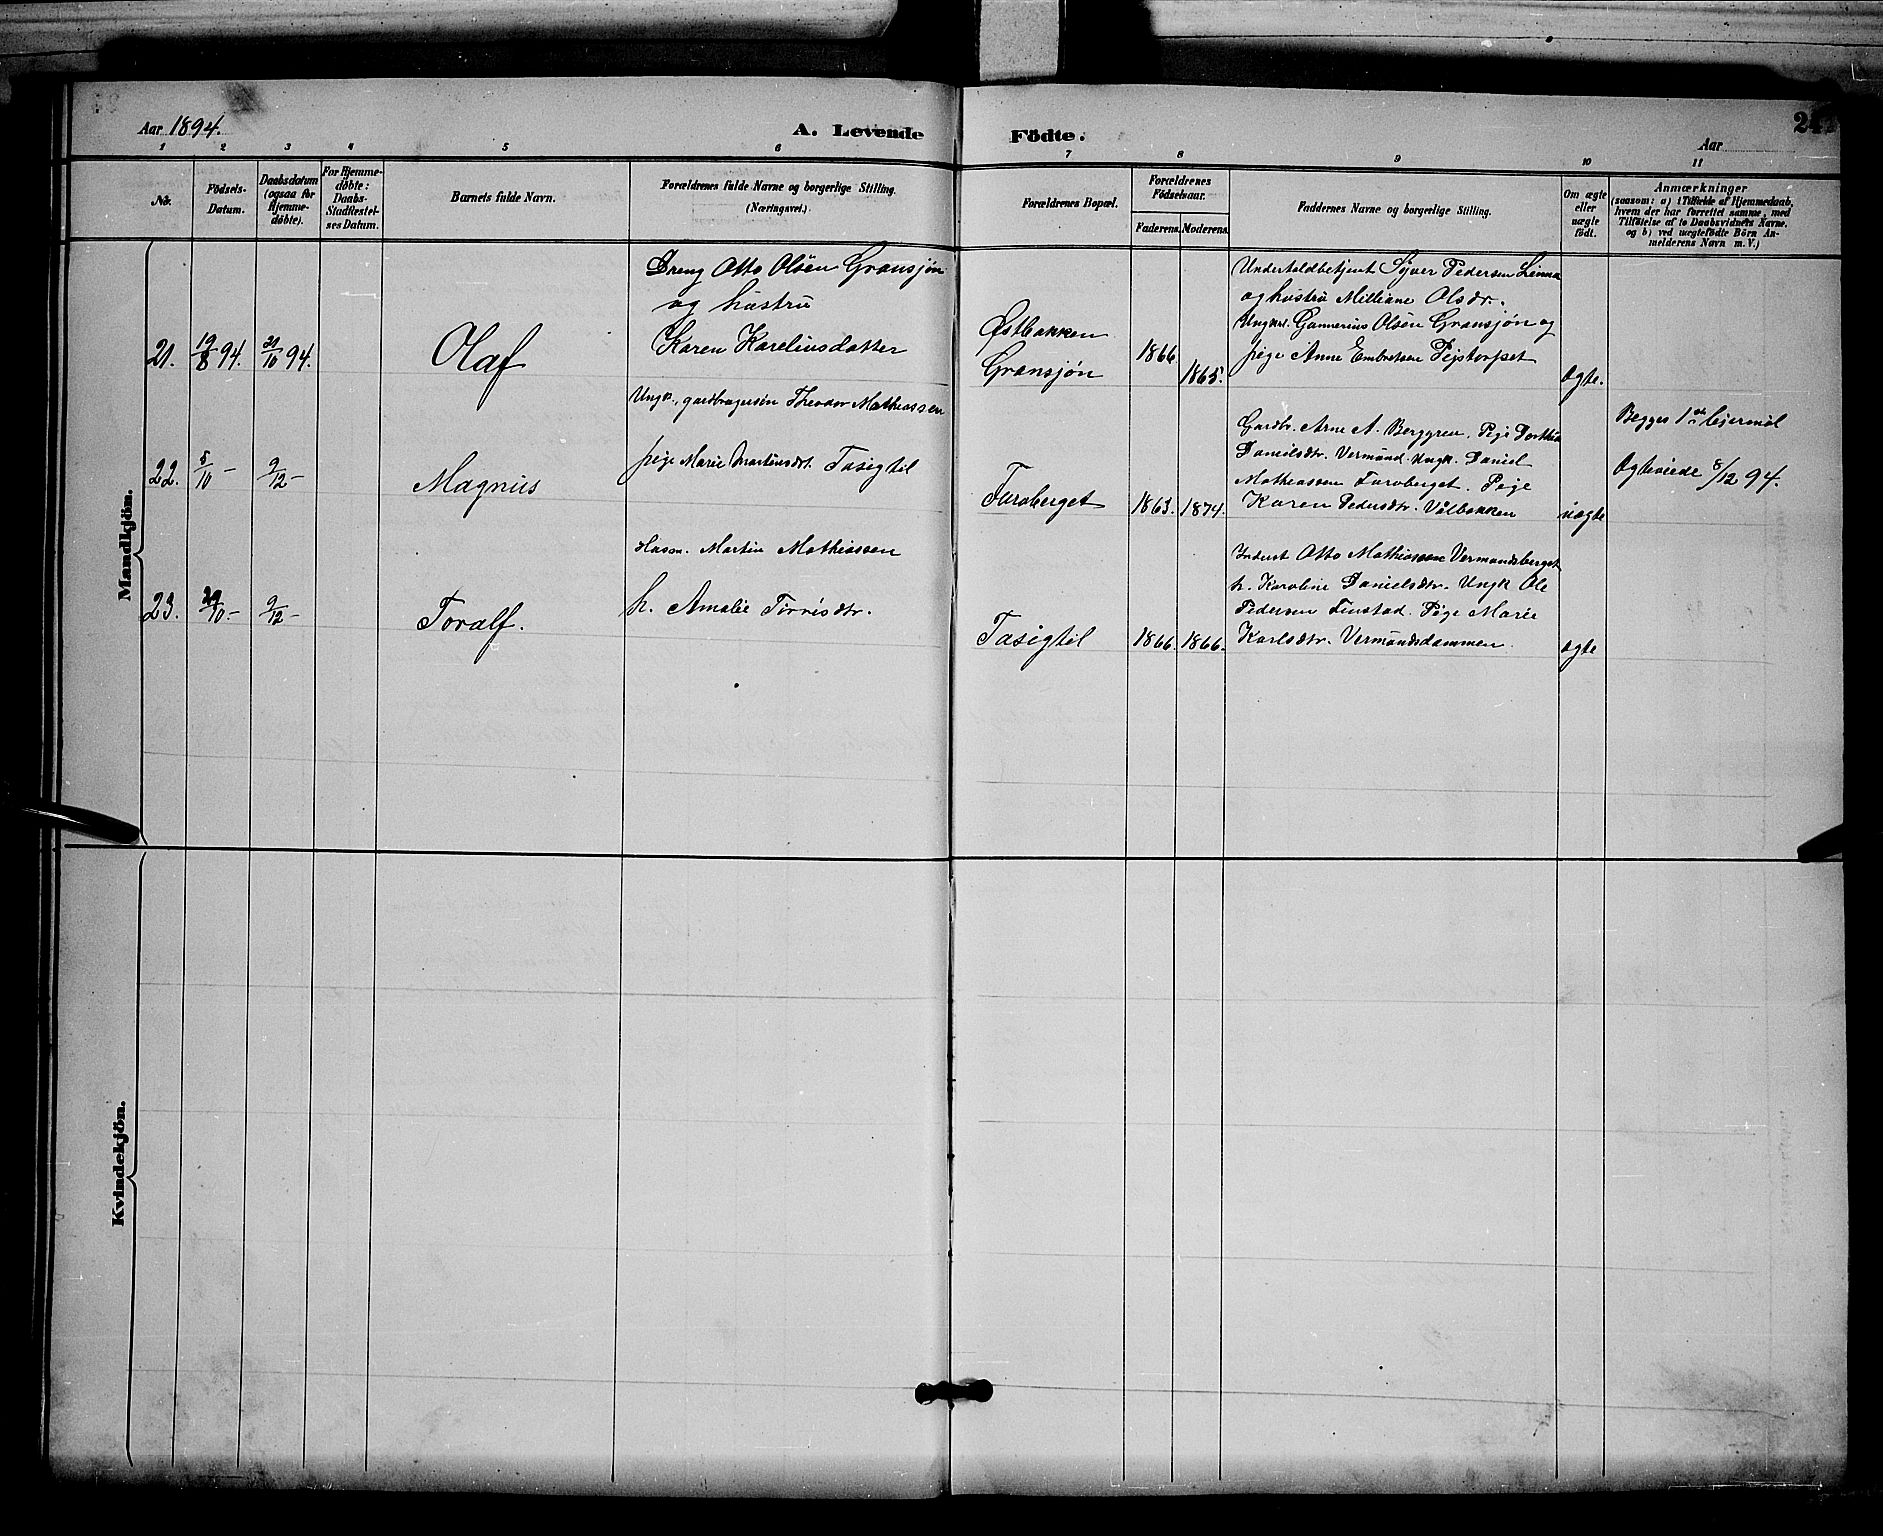 Aar 1894.
A. Levende
Födte.
24
Aar
1 2 3 4 5 6 7 8 9 10 11
No.
Födsels-
Datum.
Daabsdatum
(ogsaa for
Hjemme-
döbte).
For Hjemme-
döbte:
Daabs-
Stadfæstel-
ses Datum.
Barnets fulde Navn.
Forældrenes fulde Navne og borgerlige Stilling.
(Næringsvei.)
Forældrenes Bopæl.
Forældrenes
Födselsaar.
Faderens.
Moderens.
Faddernes Navne og borgerlige Stilling.
Om ægte
eller
uægte
födt.
Anmærkninger
(saasom: a) i Tilfælde af Hjemmedaab,
hvem der har forrettet samme, med
Tilföielse af to Daabsvidners Navne,
og b) ved uægtefödte Börn An-
melderens Navn m. V.)
Mandkjön.
21.
19/8 94.
21/10 94.
Olaf
Dreng Otto Olsen Gransjøn
og hustru
Karen Kareliusdatter
Østbakken
Gransjøn
1866
1865.
Underholdbetjent Syver Pedersen Linna
og hustru Milliane Olsdr.
Ungkl. Gunnerius Olsen Gransjøn og
pige Anne Embretsen Pejstorpet
ægte.
22.
5/10 –
9/12 –
Magnus
Ungk., gardbrugersøn Theodor Mathiassen
pige Marie Martinsdt. Tasigtil
Furuberget
1863.
1874.
Gardbr. Arne A. Berggren. Pige Dorthia
Danielsdtr. Vermund. Ungk. Daniel
Mathiassen Furuberget. Pige
Karen Pedersdtr. Vålbakken
uægte
Begges 1ste lejermål
Ægteviede 8/12 94.
23.
/10 –
9/12 –
Toralf.
Husm. Martin Mathiassen
h. Amalie Torrisdtr.
Tasigtil
1866.
1866.
Inderst Otto Mathiassen Vermundsberget
h. Karoline Danielsdtr. Ungk Ole
Pedersen Finstad. Pige Marie
Karlsdtr. Vermundsdammen.
ægte
Kvindekjön.